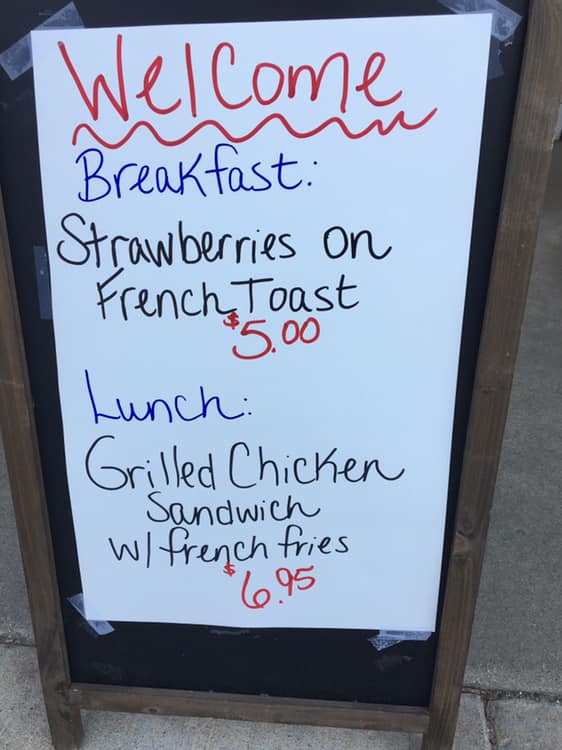 Welcome
Breakfast:
Strawberries on
French Toast
$5.00
Lunch:
Grilled Chicken
Sandwich
w/ french fries
$6.95